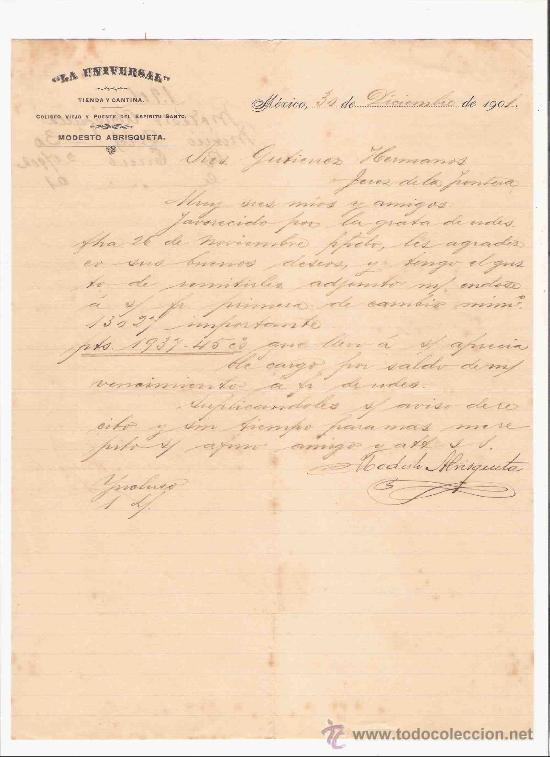 "LA UNIVERSAL"
TIENDA Y CANTINA.
COLISEO VIEJO Y PUENTE DEL ESPIRITU SANTO.
MODESTO ABRISQUETA.
México, 30 de Diciembre de 1901.
Sres. Gutierrez Hermanos
Jerez de la Frontera
Muy sres mios y amigos
Favorecido por la grata de udes
fha 26 de Noviembre ppdo, les agradez
co sus buenos deseos, y tengo el gus
to de remitirles adjunto m/ endose
á s/ fr primera de cambio núm.
importante
pts. 1937-45 cs que llevo á s/ aprecia
ble cargo, por saldo de m/
vencimiento á fr de udes.
Suplicandoles s/ aviso de re
cibo y sin tiempo para mas me re
pito s/ afmo amigo y att s. s.
Modesto Abrisqueta
Yncluso
1 L/
todocoleccion
www.todocoleccion.net